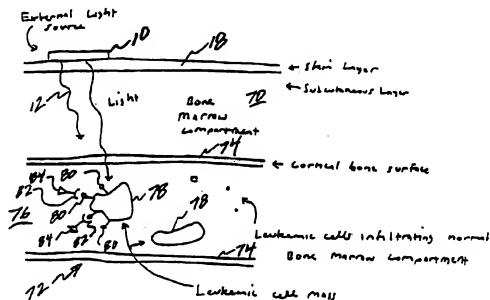 External Light
Source
10
18
← Skin Layer
← Subcutaneous Layer
12
Light
Bone
Marrow
compartment
70
74
← Cortical bone surface
84
80
82
80
78
76
84
82
80
78
Leukemic cells infiltrating normal
Bone Marrow compartment
74
72
Leukemic cell mass